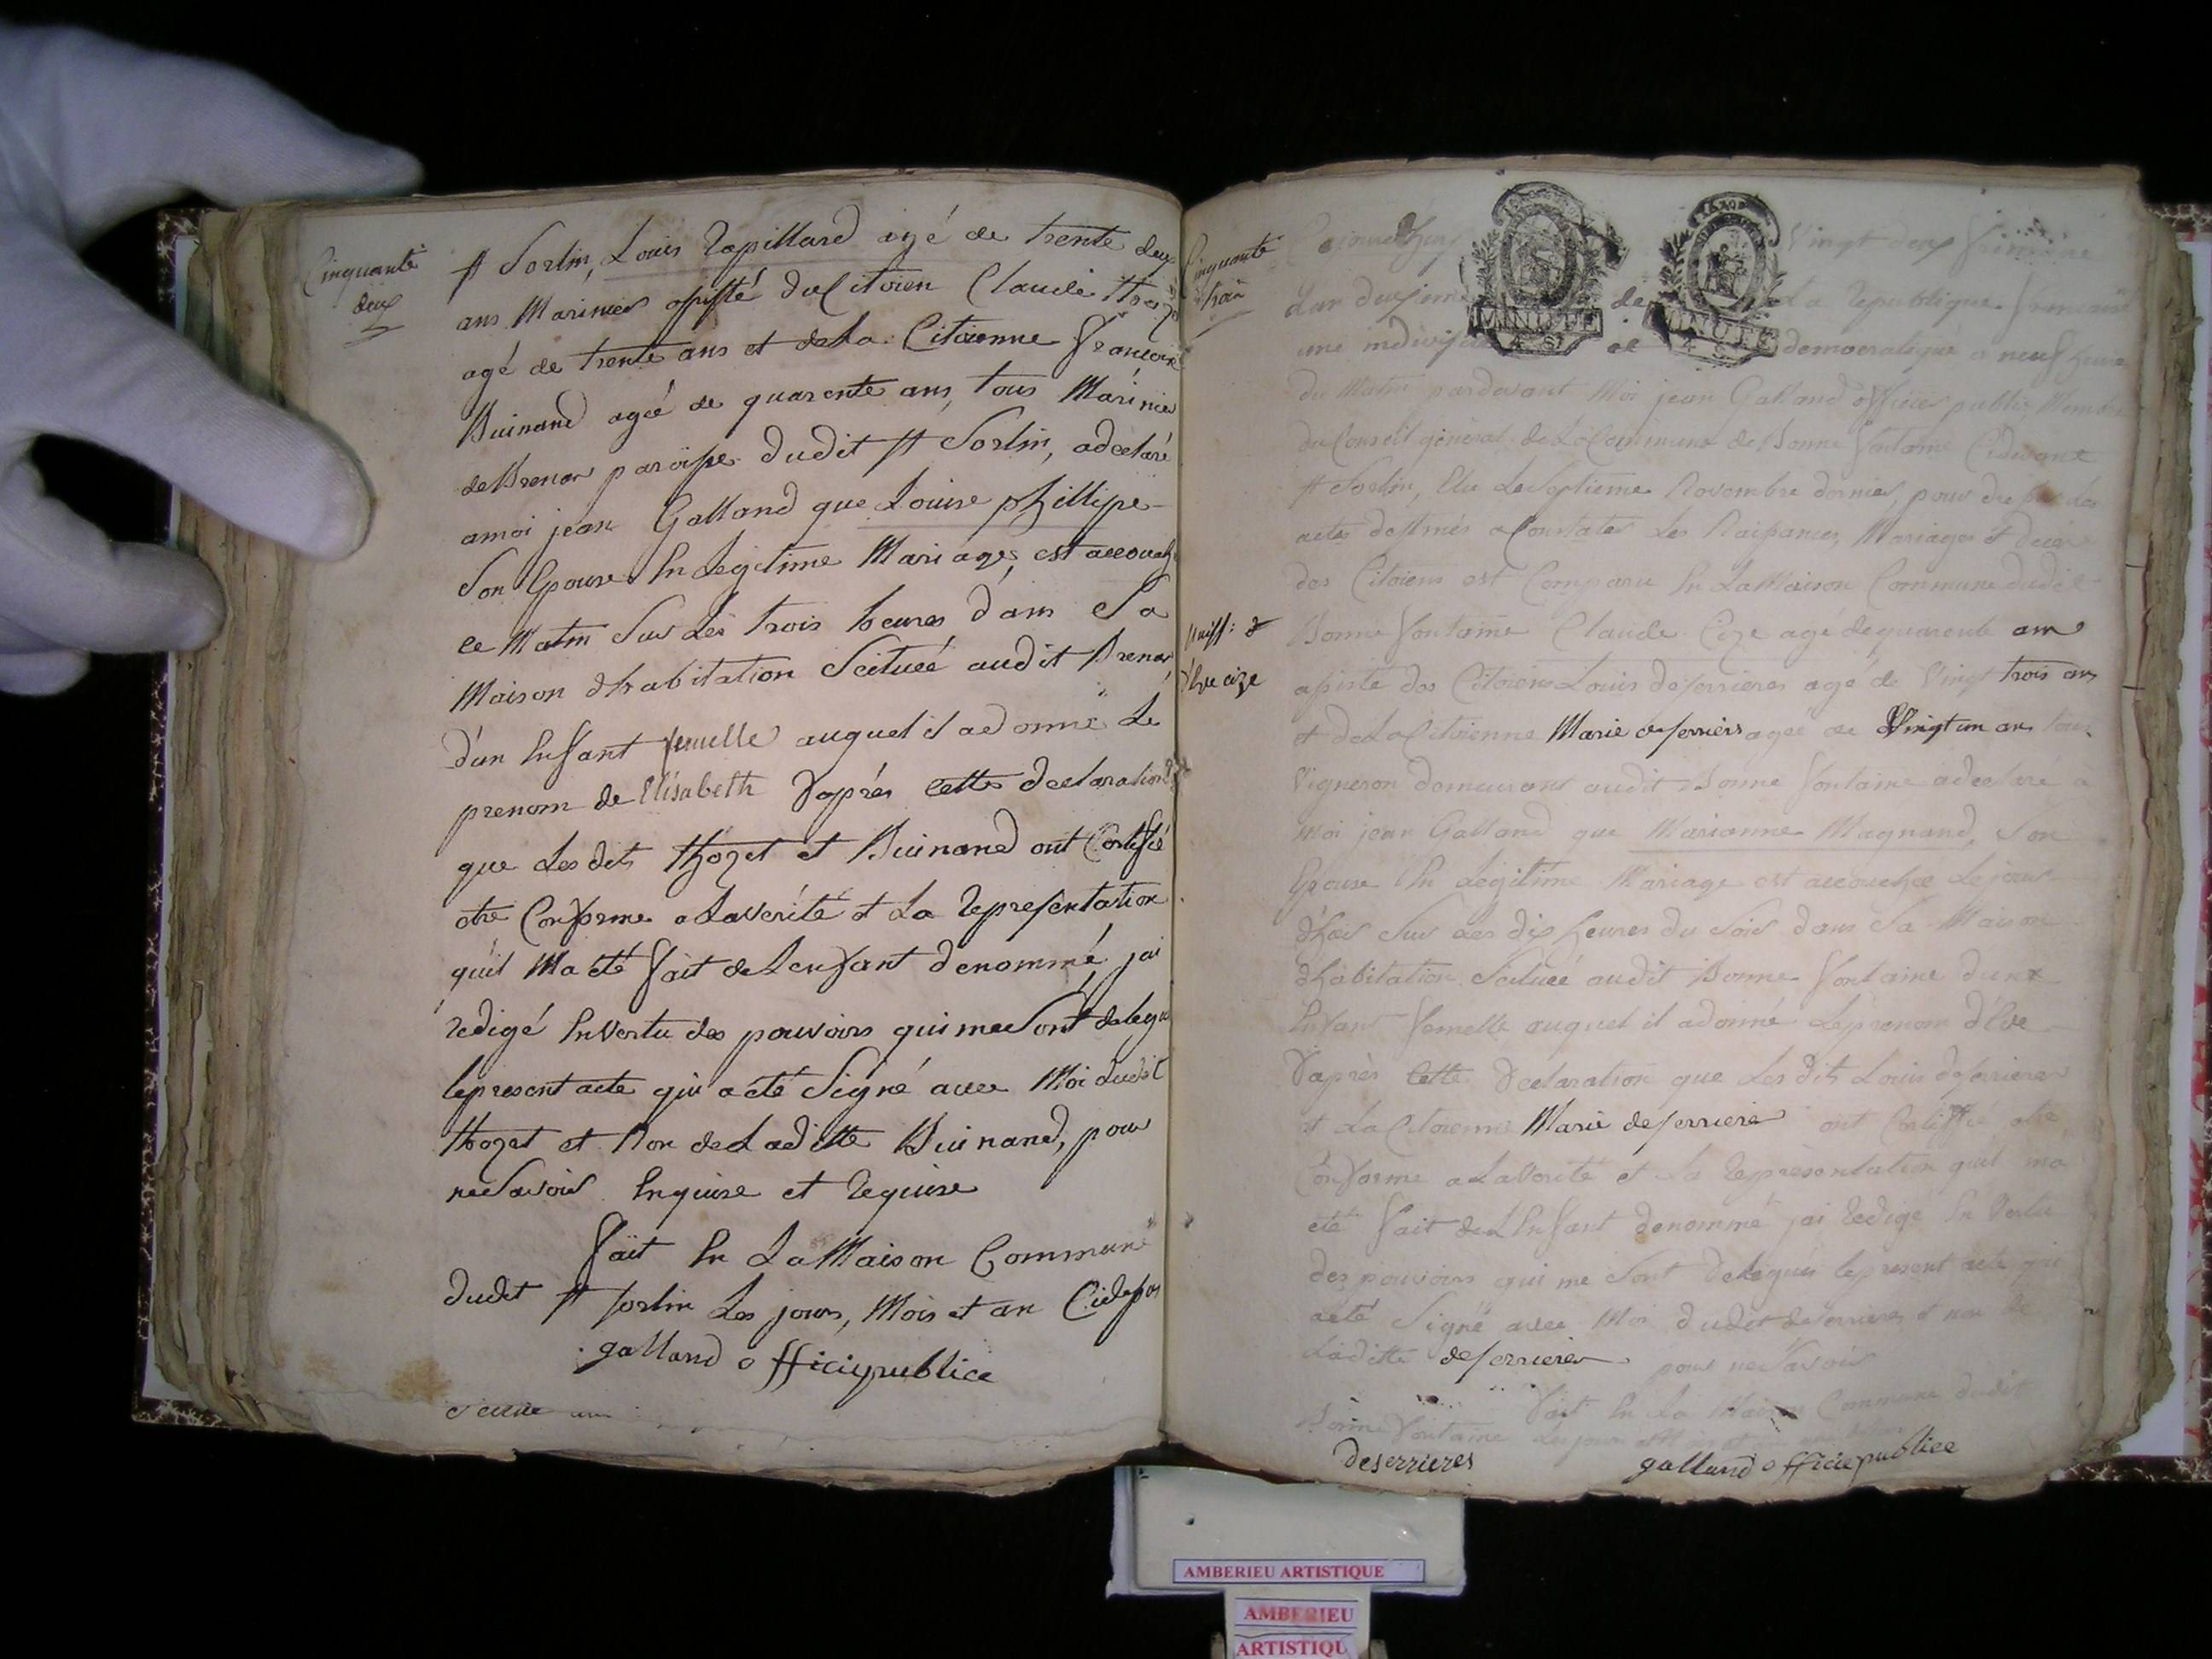 Cinquante
deux
St Sorlin, Louis Rapillard agé de trente deux
ans Marinier assisté du Citoien Claude thozet
agé de trente ans et de la Citoienne francoise
Buinand ageé de quarente ans, tous Marinier
de Brenar paroisse dudit St Sorlin, adeclaré
amoi jean Galland que Louise phillipe
Son Epouse En Legitime Mariage, est accouché
ce Matin Sur Les trois heures dans Sa
Maison dhabitation Scitueé audit Brenar
d'un Enfant femelle auquel il adonné Le
prenom de Elisabeth D'aprés cette declaration
que Les dits thozet et Buinand ont Certifié
etre Conforme a La verité et La representation
qu'il Ma eté fait de L'enfant denommé, jai
redigé En vertu des pouvoirs qui me Sont delegué
le present acte qui a eté Signé avec Moi dudit
thozet et Non de La ditte Buinand, pour
ne Savoir Enquise et requise
fait En La Maison Commune
dudit St Sorlin Les jours, Mois et an
galland officipublice
Cinquante
trois
Cejourdhuy Vingt deux frimaire
Lan deuxieme de La republique francaise
une indivisible et democratique a neuf heure
du Matin pardevant Moi jean Galland officier public Membre
du Conseil géneral de La Commune de Bonne fontaine Cidevant
St Sorlin, Elu Le Septieme Novembre dernier, pour dresser Les
actes destinés a Constater Les Naissances, Mariages et décès
des Citoiens est Comparu En La Maison Commune dudit
Bonne fontaine Claude Cize agé de quarente ans
assisté des Citoiens Louis deserrieres agé de Vingt trois ans
et de La Citoienne Marie deserrieres ageé de Vingt un an tous
Vigneron demeurant audit Bonne fontaine adeclaré a
Moi jean Galland que Marianne Magnand, Son
Epouse En Legitime Mariage est accouchée Le jour
d'hier Sur Les dix heures du Soir dans Sa Maison
d'habitation Scitueé audit Bonne fontaine d'un
Enfant femelle auquel il adonné Le prenom d'Eve
D'aprés cette Declaration que Les dits Louis deserrieres
et La Citoienne Marie deserriere ont Certifié etre
Conforme a La Verité et La representation qu'il ma
eté fait de L'Enfant denommé jai redigé En Vertu
des pouvoirs qui me Sont delegués le present acte qui
a eté Signé avec Moi dudit deserrieres et non de
Laditte deserrieres pour ne Savoir
fait En La Maison Commune dudit
Bonne fontaine Les jours
deserrieres galland officiepublice
Naiss: d
d'Eve cize
MINUTE
4. S.
MINUTE
4 S
AMBERIEU ARTISTIQUE
AMBERIEU
ARTISTIQU